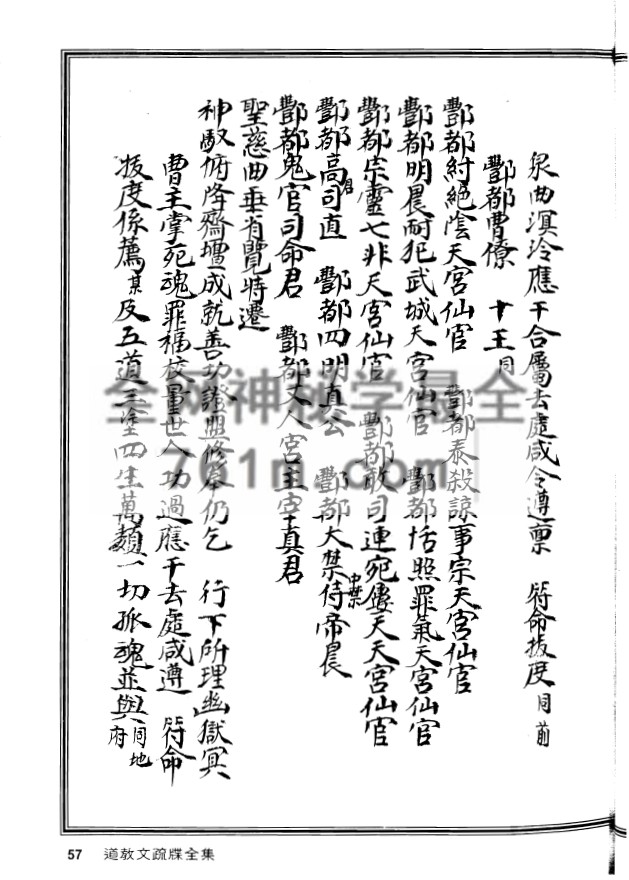 泉曲溟泠應干合屬去處咸令遵禀　符命拔度同前
酆都曹僚　十王同
酆都紂絕陰天宮仙官　酆都泰殺諒事宗天宮仙官
酆都明晨耐犯武城天宮仙官　酆都恬照罪氣天宮仙官
酆都宗靈七非天宮仙官　酆都敢司連宛屢天天宮仙官
酆都高司直　酆都四明真公　酆都大禁侍帝晨
酆都鬼官司命君　酆都丈人宮主宰真君
聖慈曲垂省覽特遷
神馭俯降齋壇成就善功證盟修奉仍乞　行下所理幽獄冥
曹主掌死魂罪福校量世人功過應干去處咸遵　符命
拔度係薦某及五道三塗四生萬類一切孤魂並與同地府
全网神秘学最全
761n.com
57　道教文疏牒全集